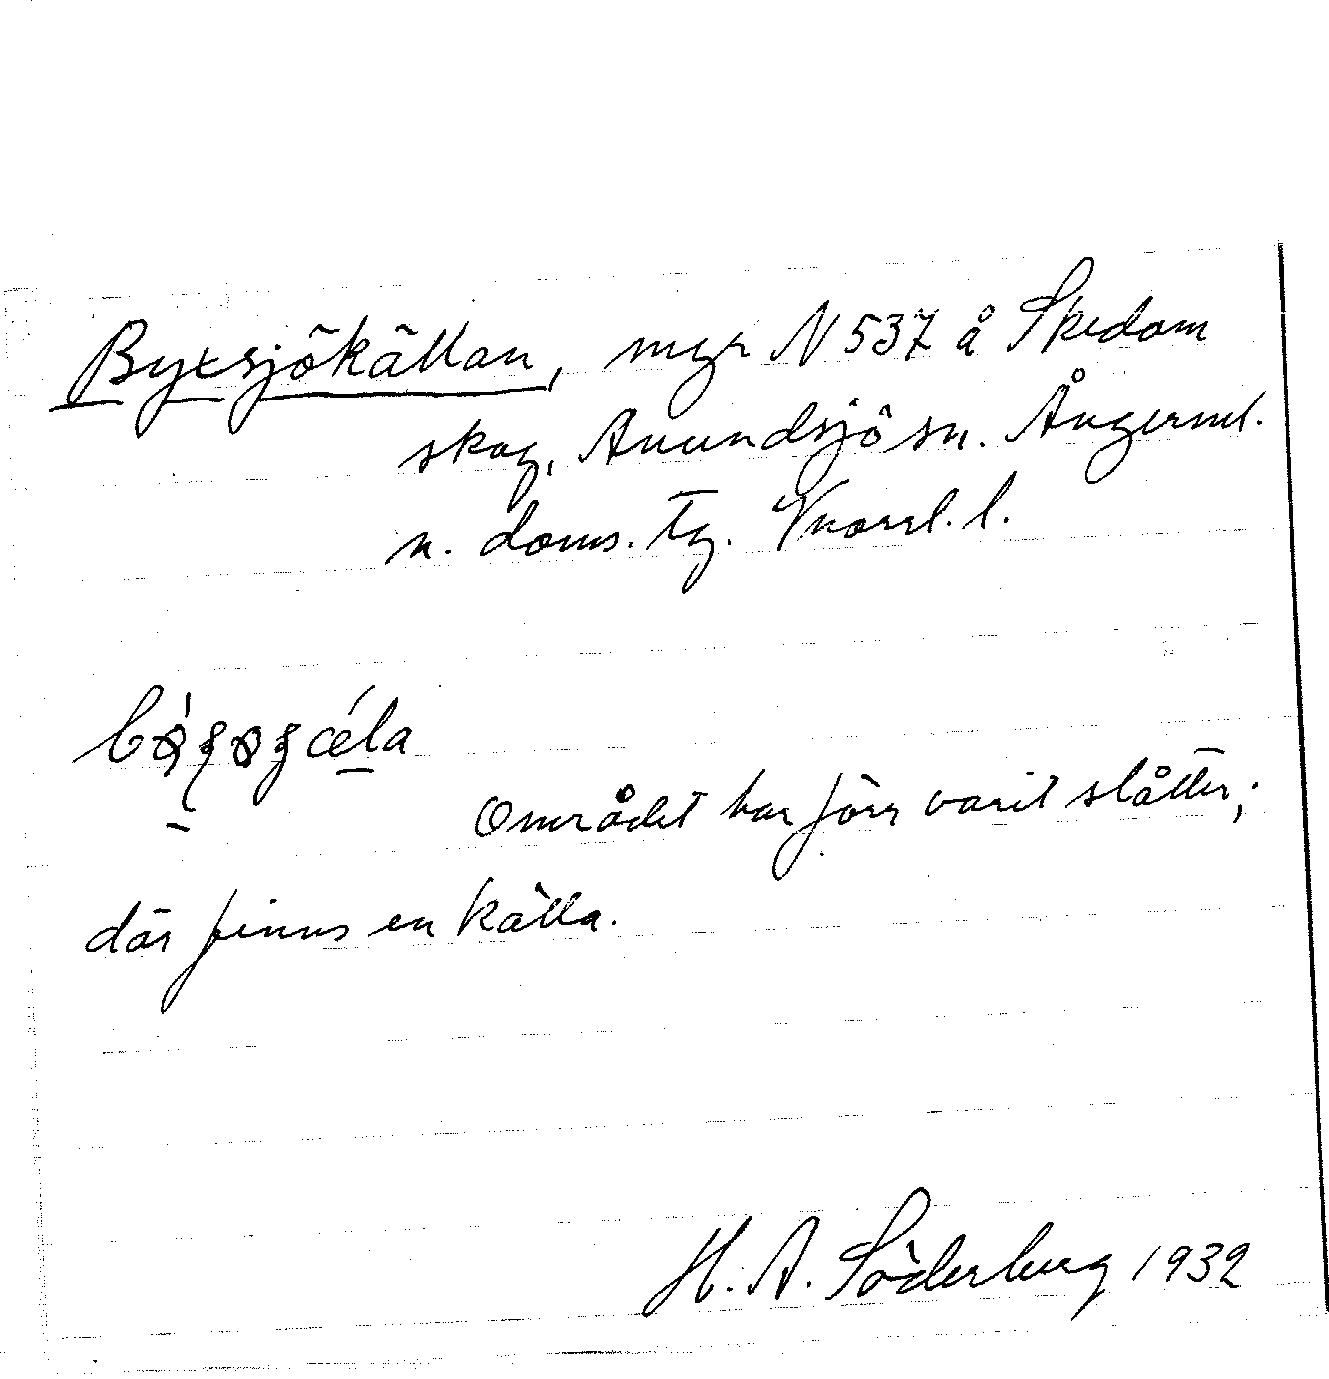 Byxsjökällan, mgr N 537 å Skedom
skog, Anundsjö sn. Ångerml.
n. doms. Tg. Vnorrl. l.
Området har förr varit slåtter;
där finns en källa.
H. A. Söderberg 1932